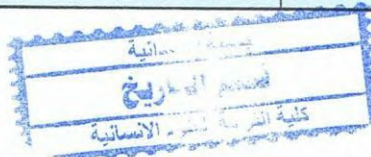 قسم التاريخ
كلية التربية للعلوم الانسانية